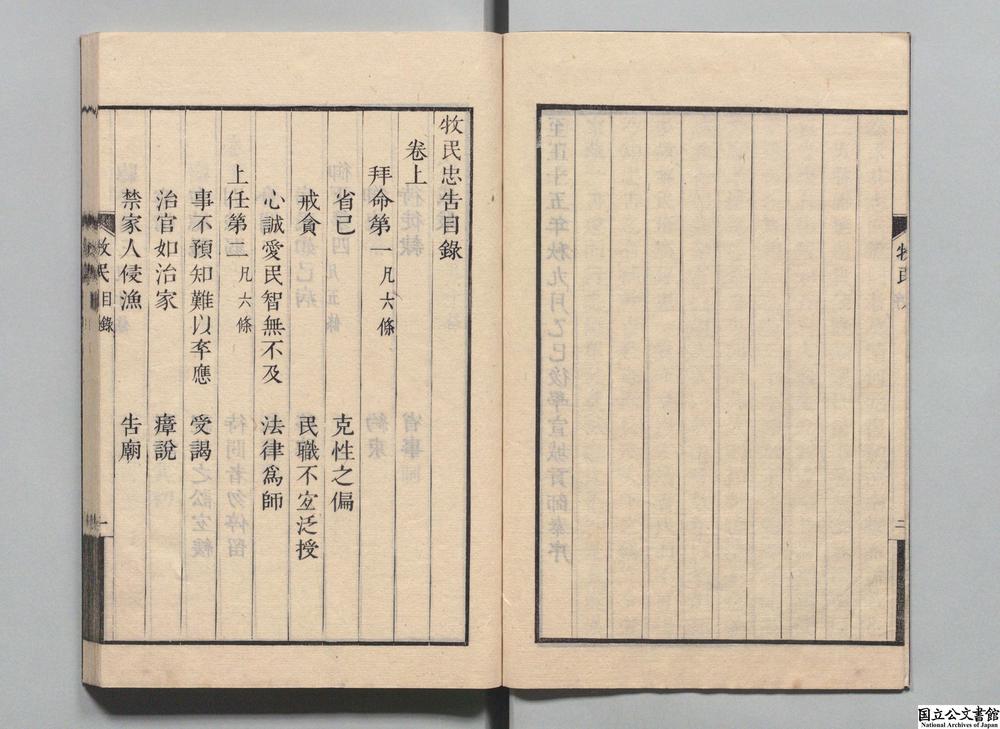 牧民
二
牧民忠告目錄
卷上
拜命第一 凡六條
省己 克性之偏
戒貪 民職不宜泛授
心誠愛民智無不及 法律爲師
上任第二 凡六條
事不預知難以卒應 受謁
治官如治家 瘴說
禁家人侵漁 告廟
牧民 目錄 一
国立公文書館
National Archives of Japan